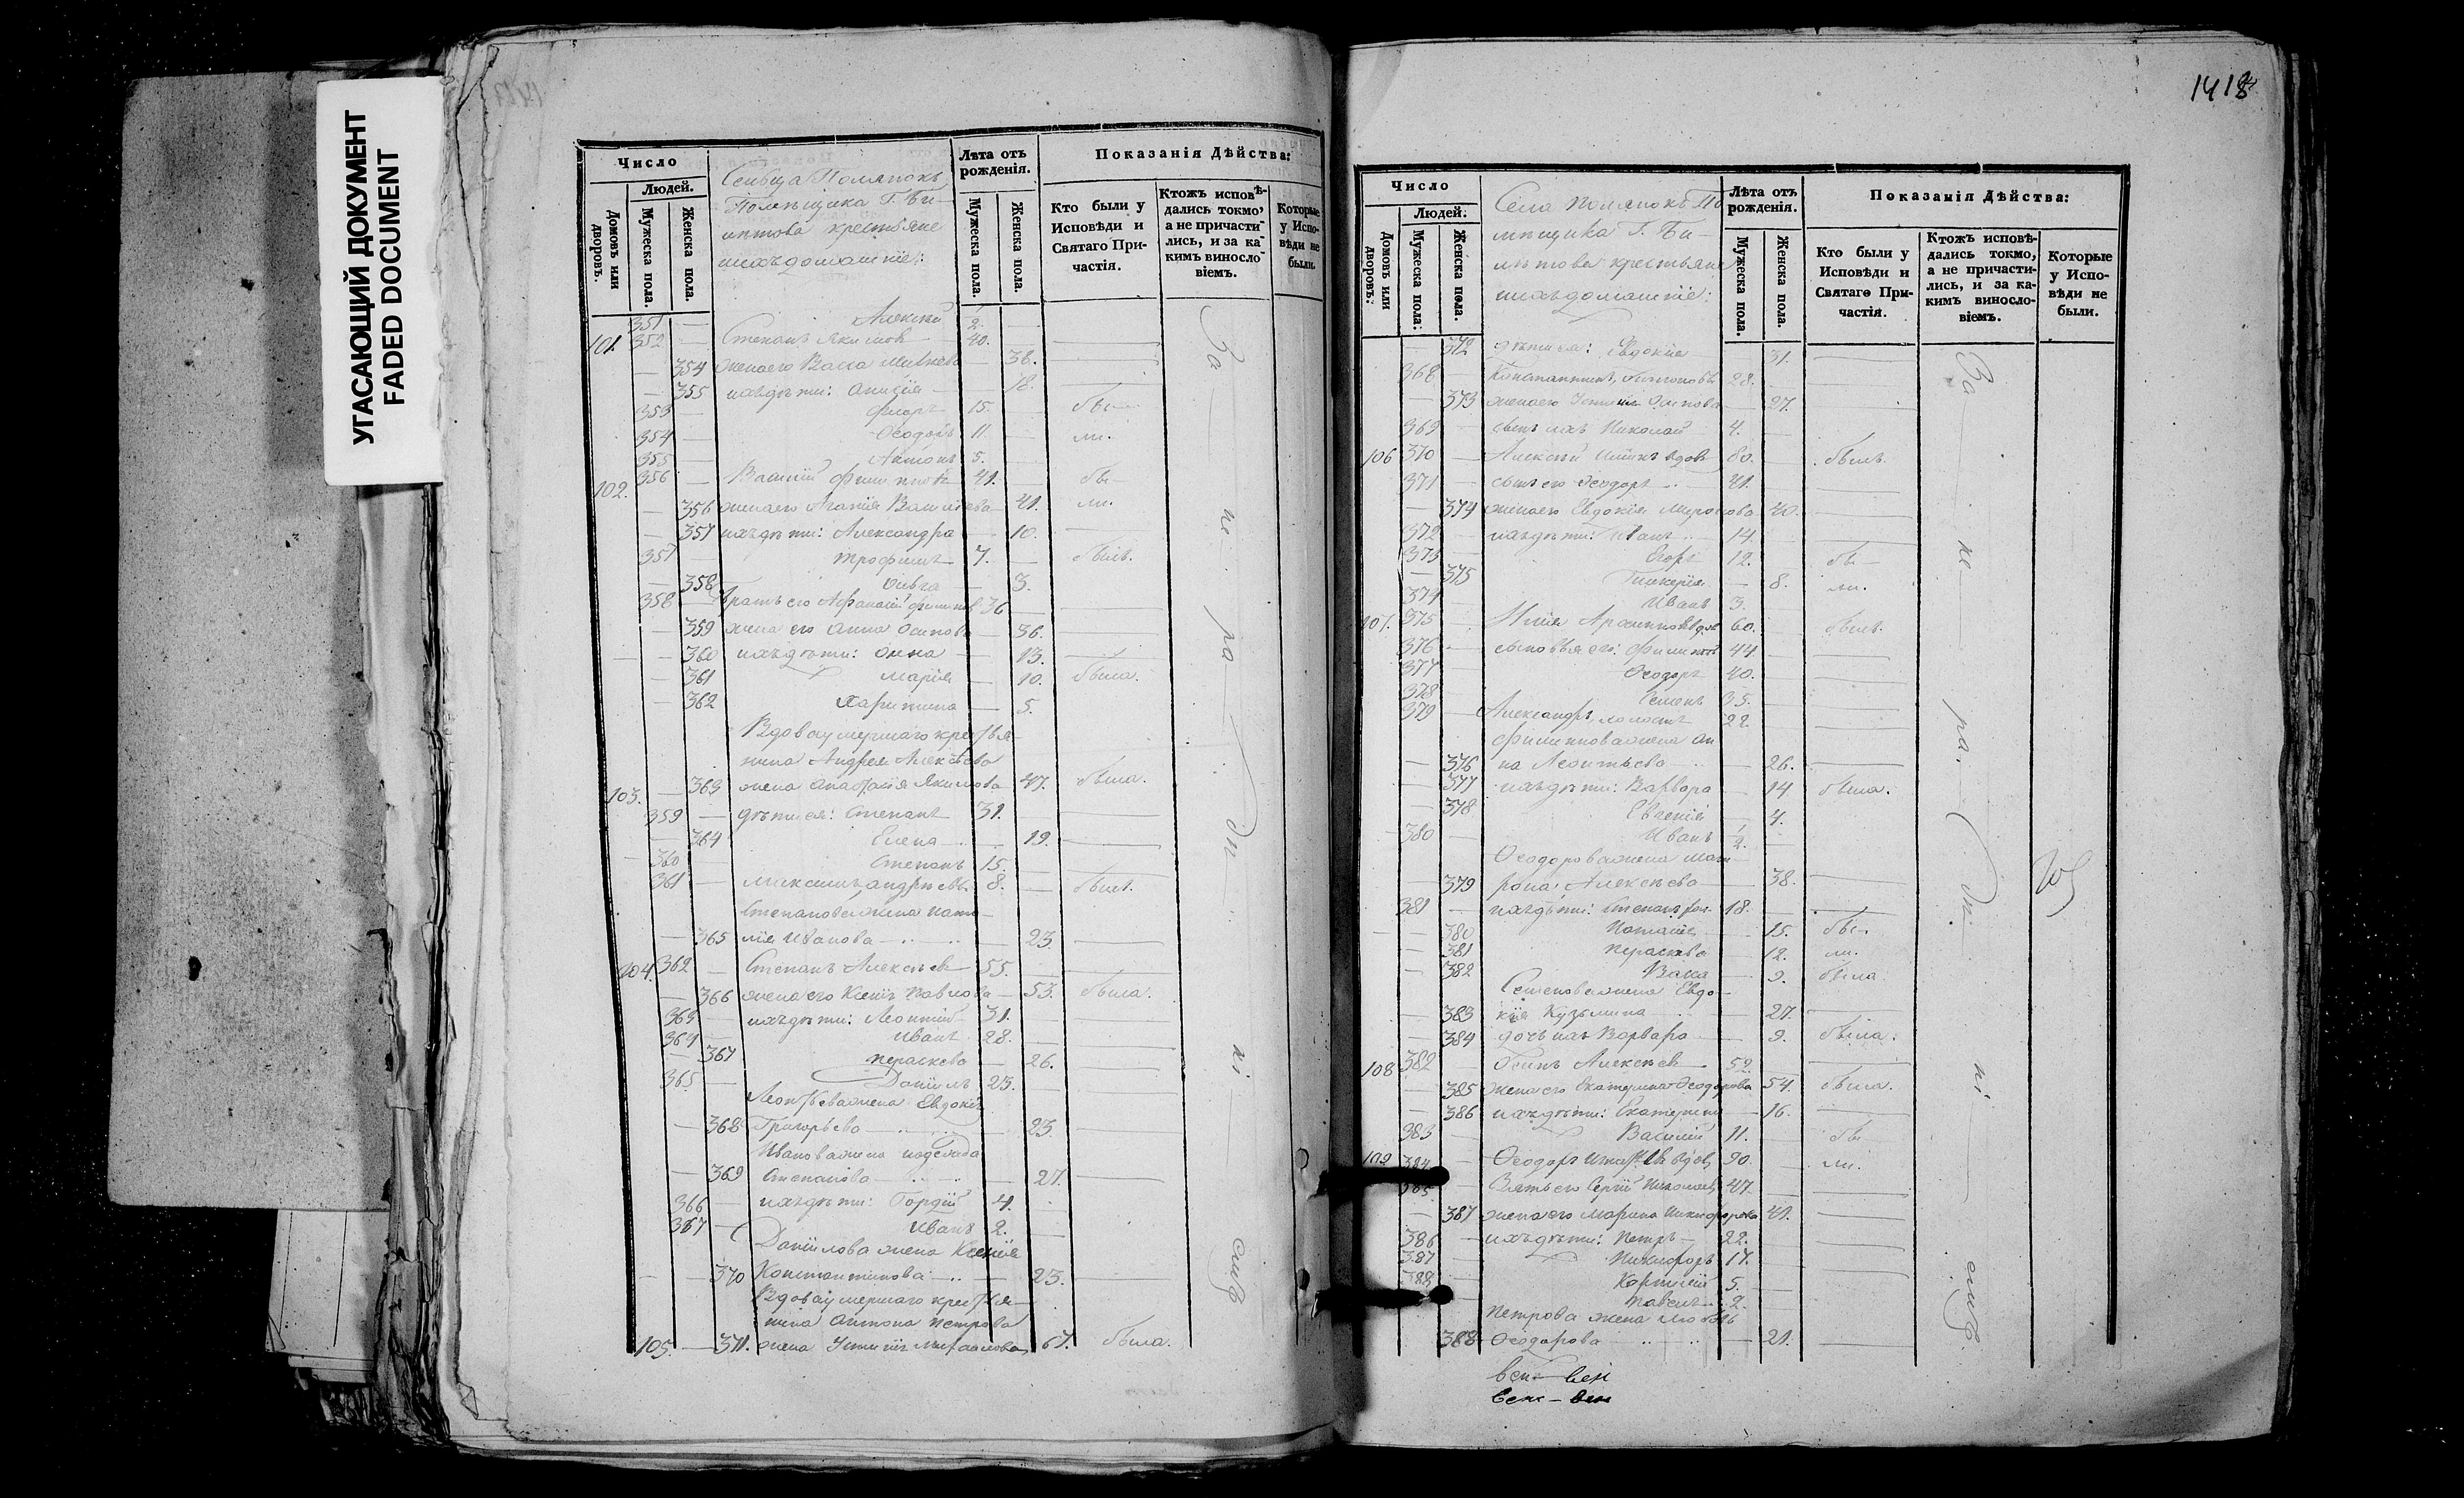 УГАСАЮЩИЙ ДОКУМЕНТ
FADED DOCUMENT
Число
Людей.
Домовъ или дворовъ.
Мужеска пола.
Женска пола.
Сельца Полянокъ
Помѣщика Г. Би-
крестьяне
ихъ домашніе:
Лѣта отъ рожденія.
Мужеска пола.
Женска пола.
Показанія Дѣйства:
Кто были у Исповѣди и Святаго При-частія.
Ктожъ исповѣ-дались токмо, а не причасти-лись, и за ка-кимъ винослo-віемъ.
Которые у Испо-вѣди не были.
351 — Алексѣй 1/2 —
101. 352 — Степанъ Якимовъ 40.
— 354 жена его Васса — 38.
— 355 ихъ дѣти: — 18.
353 — Флоръ 15. — бы-
354 — Ѳеодоръ 11 — ли.
355 — Антонъ 5. —
102. 356 — Василій Филиповъ 41. — бы-
— 356 жена его Агафія Васильева 41. ли.
— 357 ихъ дѣти: Александра — 10.
357 — Трофимъ 7. — былъ.
— 358 Ольга — 3.
358 — Братъ его Афанасій Филиповъ 36 —
— 359 жена его Анна Осипова — 36.
— 360 ихъ дѣти: Анна — 13.
— 361 Марія — 10. была.
— 362 Харитина — 5.
Вдова умершаго крестья-
нина Андрея Алексѣева
103. — 363 жена Анастасія Якимова 47. была.
359 — дѣти ея: Степанъ 31.
— 364 Елена — 19.
360 — Степанъ 15.
361 — Андреевъ 8. — былъ.
Степанова жена Ната-
— 365 лія Иванова — 23
104. 362 — Степанъ Алексѣевъ 55.
— 366 жена его Ксенія Павлова — 53. была.
363 — ихъ дѣти: Леонтій 31.
364 — Иванъ 28.
— 367 Параскева — 26.
365 — Даніилъ 23.
Леонтьева жена Евдокія
— 368 Григорьева — 23.
Иванова жена Надежда
— 369 Степанова — 27.
366 — ихъ дѣти: Гордій 4.
367 — Иванъ 2.
Даніилова жена Ксенія
— 370 Константинова — 23.
Вдова умершаго крестья-
нина Антона Петрова
105. — 371. жена Устинія Михайлова 67. была.
За не ра дѣ ні емъ
1418
Число
Людей.
Домовъ или дворовъ.
Мужеска пола.
Женска пола.
Села Полянокъ По
мѣщика Г. Би-
крестьяне
ихъ домашніе:
Лѣта отъ рожденія.
Мужеска пола.
Женска пола.
Показанія Дѣйства:
Кто были у Исповѣди и Святаго При-частія.
Ктожъ исповѣ-дались токмо, а не причасти-лись, и за ка-кимъ виносло-віемъ.
Которые у Испо-вѣди не были.
— 372 дѣти ея: Евдокія 31.
368 — Константинъ Антоновъ 28.
— 373 жена его Осипова 27.
369 — сынъ ихъ Николай 4.
106 370 — Алексѣй вдовъ 80. былъ.
371 — сынъ его Ѳеодоръ 41.
— 374 жена его Евдокія Миронова 40.
372 — ихъ дѣти: Иванъ 14.
373 — Егоръ 12. бы-
— 375 Гликерія — 8. ли.
374 Иванъ 3.
107. 375 — вдовъ 60. былъ.
376 — сыновья его: Филиппъ 44.
377 Ѳеодоръ 40.
378 Семенъ 35.
379 — Александръ холостъ 22.
Филиппова жена Ан
— 376 на Леонтьева — 26.
— 377 ихъ дѣти: Варвара — 14 была.
— 378 Евгенія — 4.
380 — Иванъ 1/2.
Ѳеодорова жена Мат-
— 379 рона Алексѣева — 38.
381 — ихъ дѣти: Степанъ 18.
— 380 Наталія — 15. бы-
— 381 Параскева — 12. ли.
— 382 Васса — 9. была
Семенова жена Евдо-
— 383 кія Кузьмина — 27.
— 384 дочь ихъ Варвара — 9. была.
108 382 — Осипъ Алексѣевъ 52.
— 385 жена его Екатерина Ѳеодорова 54. была.
— 386 ихъ дѣти: Екатерина — 16.
383 — Василій 11. бы-
109 384 — Ѳеодоръ вдовъ 90. — ли.
385 — Зять его Сергій 47.
— 387 жена его Марина Никифорова 41.
386 — ихъ дѣти: Петръ 22.
387 — Никифоръ 17.
388 — 5.
Павелъ 2.
Петрова жена Любовь
388 Ѳеодорова — 21.
За не ра дѣ ні емъ